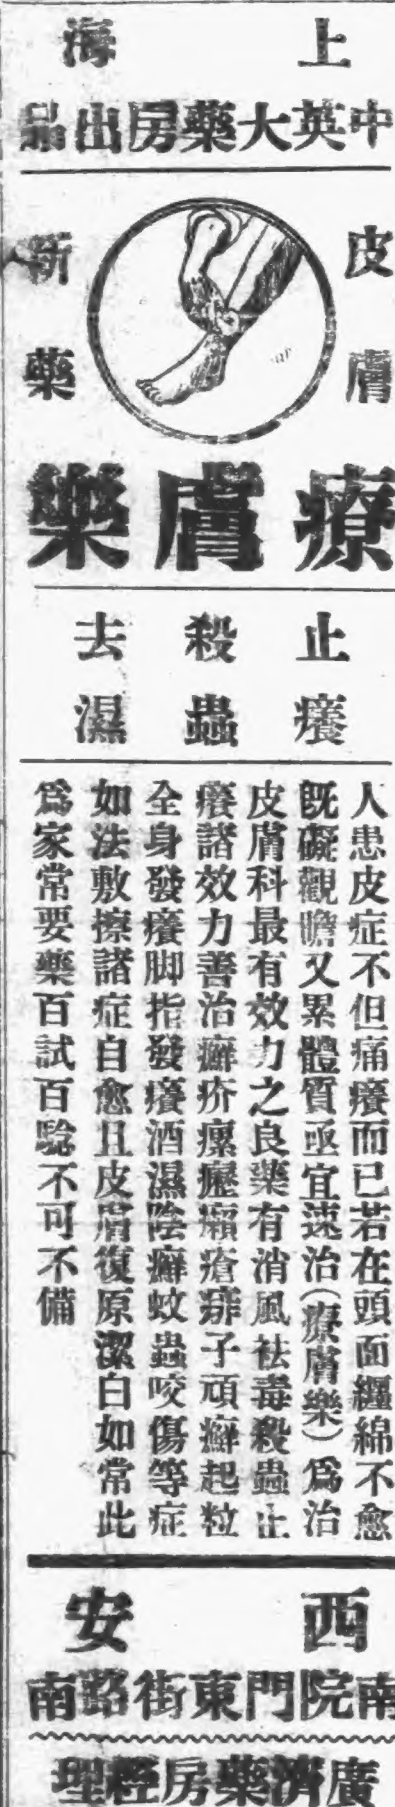 上海
中英大藥房出品
皮膚
新藥
療膚樂
止癢
殺蟲
去濕
人患皮症不但痛癢而已若在頭面纏綿不愈
既礙觀瞻又累體質亟宜速治(療膚樂)爲治
皮膚科最有效力之良藥有消風祛毒殺蟲止
癢諸效力善治癬疥瘰癧瘌瘡痱子頑癬起粒
全身發癢脚指發癢酒濕陰癬蚊蟲咬傷等症
如法敷擦諸症自愈且皮膚復原潔白如常此
爲家常要藥百試百驗不可不備
西安
南院門東街路南
廣濟藥房經理